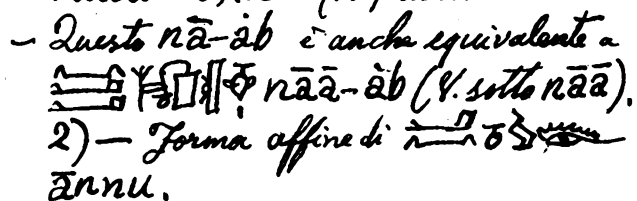 – Questo nā-ȧb è anche equivalente a
nāā-ȧb (V. sotto nāā).
2) — Forma affine di
ānnu.